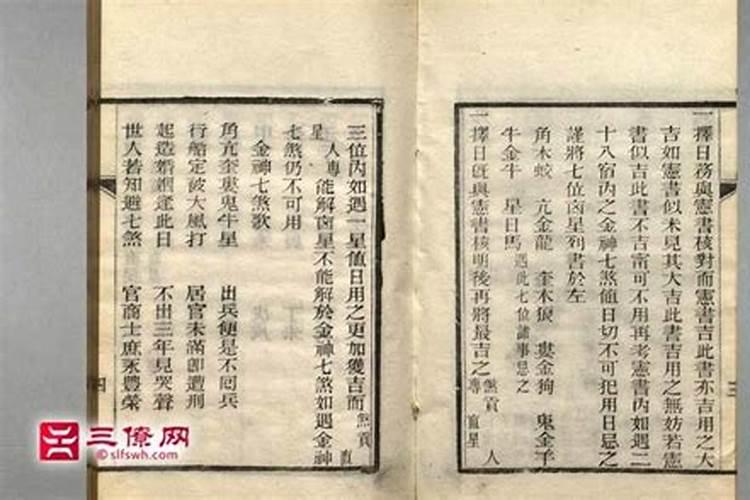 一擇日務與憲書核對而憲書吉此書亦吉用之大
吉如憲書似未見其大吉此書吉用之無妨若憲
書似吉此書不吉甯可不用再考憲書內如遇二
十八宿內之金神七煞值日切不可犯用日忌之
謹將七位凶星列書於左
角木蛟 亢金龍 奎木狼 婁金狗 鬼金羊
牛金牛 星日馬 遇此七位諸事忌之
一擇日旣與憲書核明後再將最吉之煞貢 人
專 直星
三
三位內如遇一星值日用之更加獲吉而煞貢 直
星 人專 能解凶星不能解於金神七煞如遇金神
七煞仍不可用
金神七煞歌
角亢奎婁鬼牛星 出兵便是不回兵
行船定被大風打 居官未滿卽遭刑
起造婚姻逢此日 不出三年見哭聲
世人若知避七煞 官商士庶永豐榮
四
三僚网
©slfswh.com